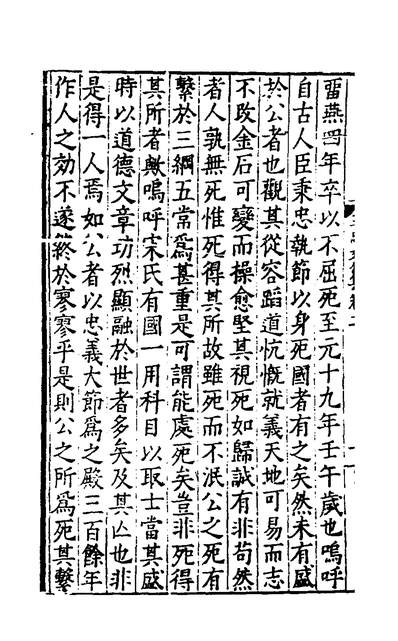 留燕四年卒以不屈死至元十九年壬午歲也嗚呼
自古人臣秉忠執節以身死國者有之矣然未有盛
於公者也觀其從容蹈道忼慨就義天地可易而志
不攺金石可變而操愈堅其視死如歸誠有非苟然
者人孰無死惟死得其所故雖死而不泯公之死有
繫於三綱五常爲甚重是可謂能處死矣豈非死得
其所者歟嗚呼宋氏有國一用科目以取士當其盛
時以道德文章功烈顯融於世者多矣及其亡也非
是得一人焉如公者以忠義大節爲之殿三百餘年
作人之効不遂終於寥寥乎是則公之所爲死其繫